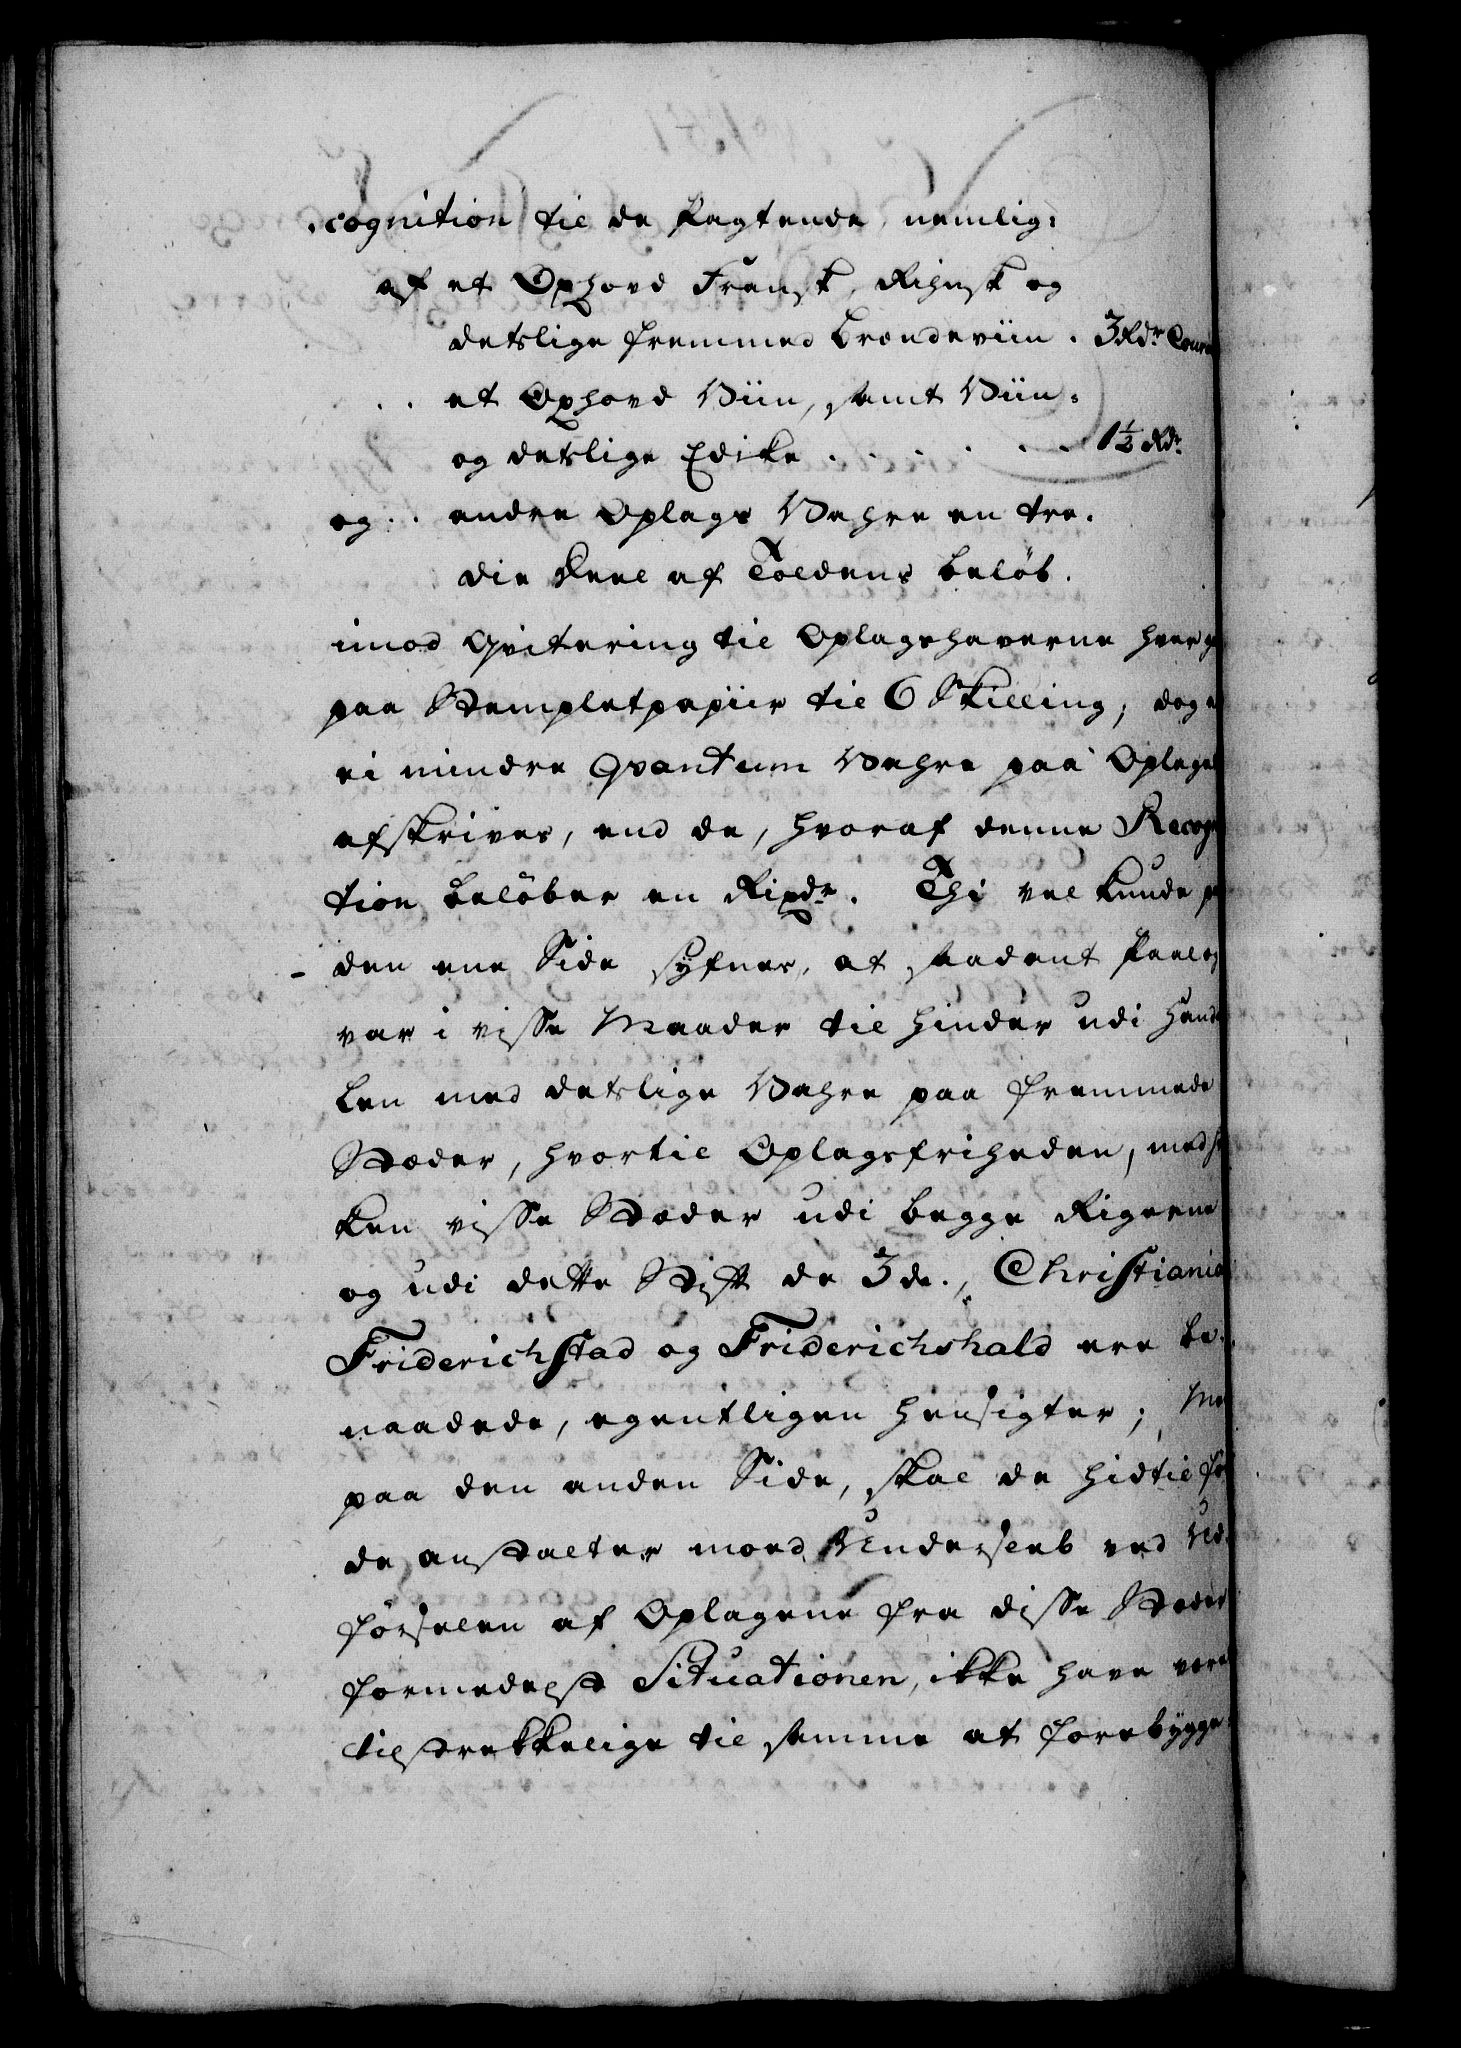 cognition til de Pagtende, nemlig:
af et Oxhovd Fransk, Rihnsk og
detslige fremmed Brændeviin . 3 Rdr Cour
. . et Oxhovd Viin, samt Viin-
og detslige Edike . . . . . . 1½ Rdr
og . . andre Oplags Vahre en tre-
die Deel af Toldens beløb.
imod Qvitering til Oplagshaverne hver
paa Stemplet papiir til 6 Skilling, dog
ei mindre Qvantum Vahre paa Oplaget
afskrives, end de, hvoraf denne Recog
tion beløber en Rixdr. Thi vel kunde
den ene Side synes, at saadant Paalæg
var i visse Maader til hinder udi Hand
len med detslige Vahre paa fremmede
Stæder, hvortil Oplagsfriheden, med
ken visse Stæder udi begge Rigerne
og udi dette Stift de 3de, Christiania
Friderichstad og Friderichshald ere be-
naadede, egentligen hensigter; Me
paa den anden Side, skal de hidtil
de anstalter mod Underslæb ved Ud-
førselen af Oplagene fra disse Stæder
formedelst Situationen, ikke have være
tilstrekkelige til samme at forebygge